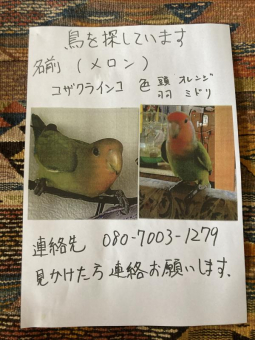 鳥を探しています
名前 (メロン)
コザクラインコ 色 頭 オレンジ
羽 ミドリ
連絡先 080-7003-1279
見かけた方連絡お願いします.